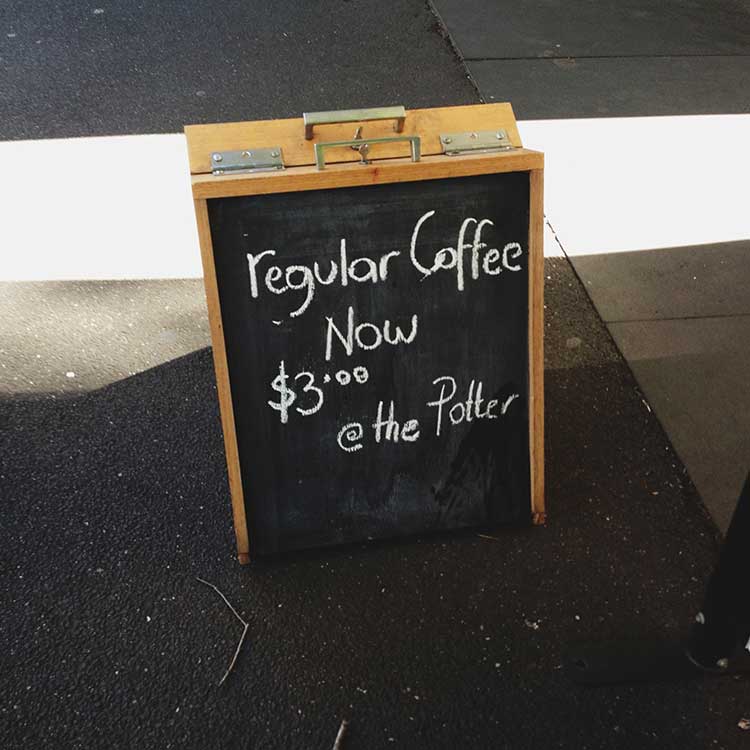 regular Coffee
Now
$3.00
@ the Potter